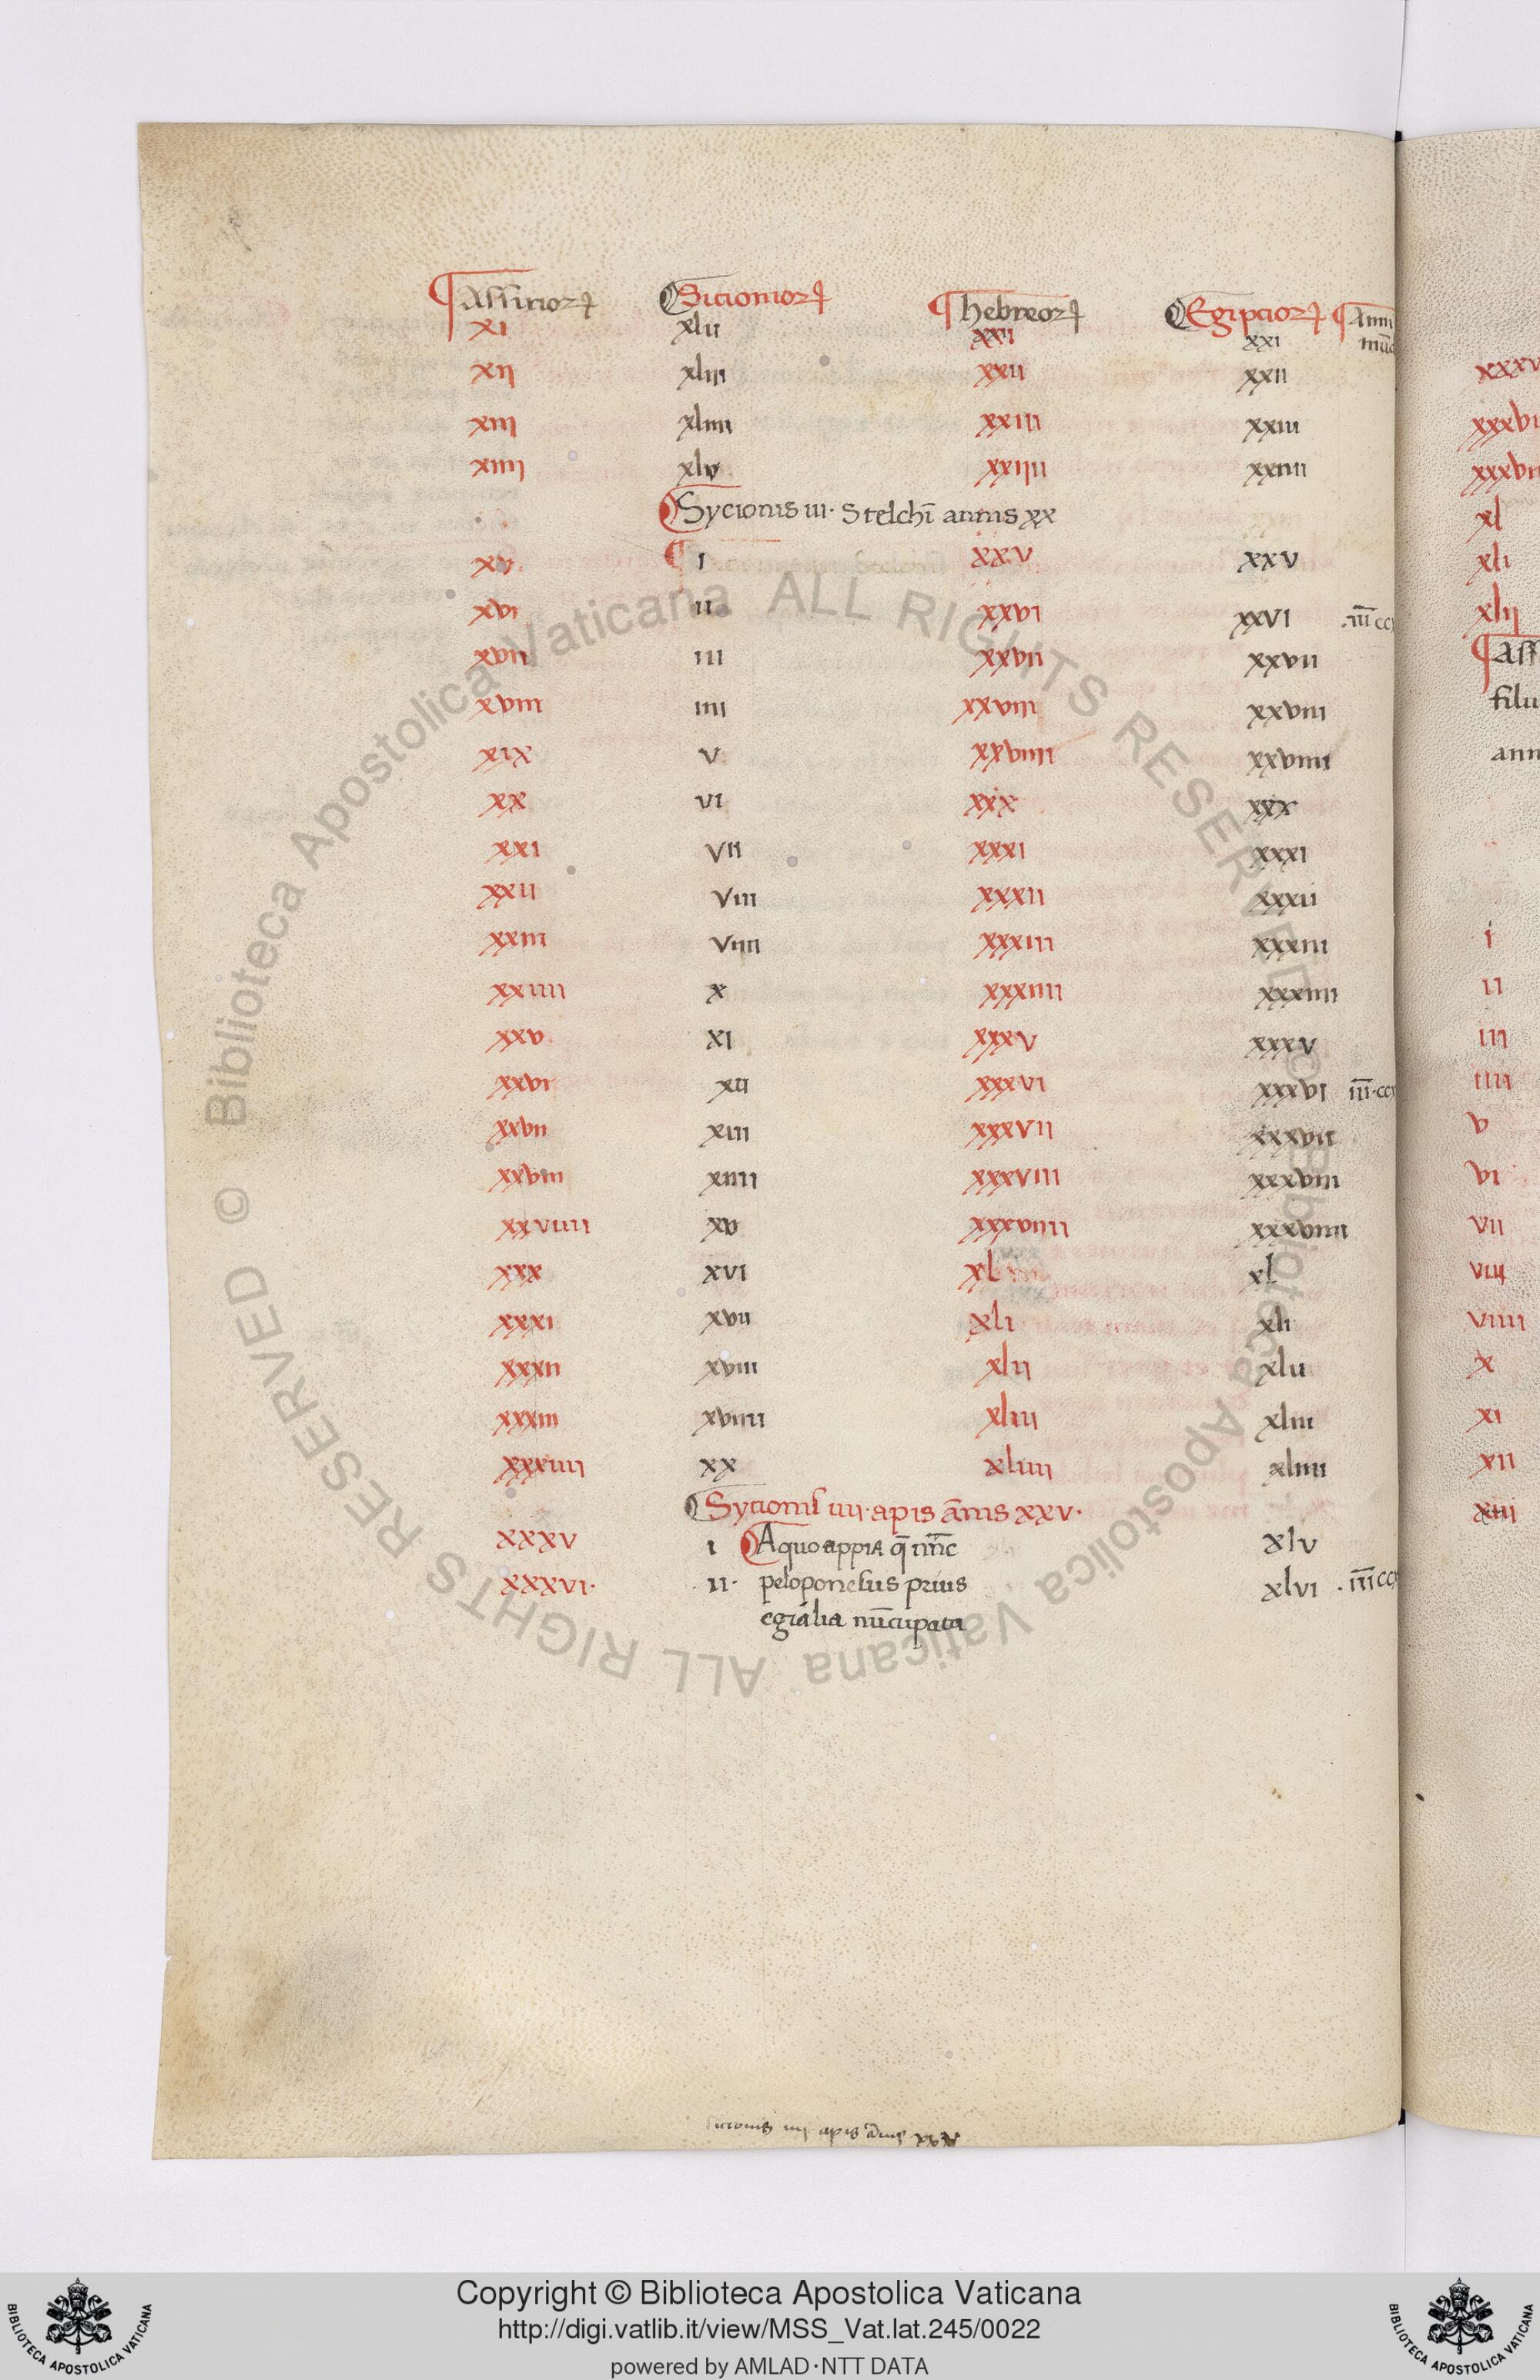 Assirioꝝ Sicionioꝝ hebreoꝝ Egiptioꝝ Anni
xi xlii xxi xxi
xii xliii xxii xxii
xiii xliiii xxiii xxiii
xiiii xlv xxiiii xxiiii
Sycionis iii. Stelchī annis xx
xv i xxv xxv
xvi ii xxvi xxvi
xvii iii xxvii xxvii
xviii iiii xxviii xxviii
xix v xxviiii xxviiii
xx vi xxx xxx
xxi vii xxxi xxxi
xxii viii xxxii xxxii
xxiii viiii xxxiii xxxiii
xxiiii x xxxiiii xxxiiii
xxv xi xxxv xxxv
xxvi xii xxxvi xxxvi
xxvii xiii xxxvii xxxvii
xxviii xiiii xxxviii xxxviii
xxviiii xv xxxviiii xxxviiii
xxx xvi xl xl
xxxi xvii xli xli
xxxii xviii xlii xlii
xxxiii xviiii xliii xliii
xxxiiii xx xliiii xliiii
Sycionis iiii. apis āniis xxv.
xxxv i Aquo appia q̄ nūc xlv
xxxvi. ii. peloponesus prius xlvi
egialia nūcupata
xl
xli
xlii
Ass
filii
ann
i
ii
iii
iiii
v
vi
vii
viii
viiii
x
xi
xii
xiii
© Biblioteca Apostolica Vaticana ALL RIGHTS RESERVED
© Biblioteca Apostolica Vaticana ALL RIGHTS RESERVED
Copyright © Biblioteca Apostolica Vaticana
http://digi.vatlib.it/view/MSS_Vat.lat.245/0022
powered by AMLAD·NTT DATA
BIBLIOTECA APOSTOLICA VATICANA
BIBLIOTECA APOSTOLICA VATICANA